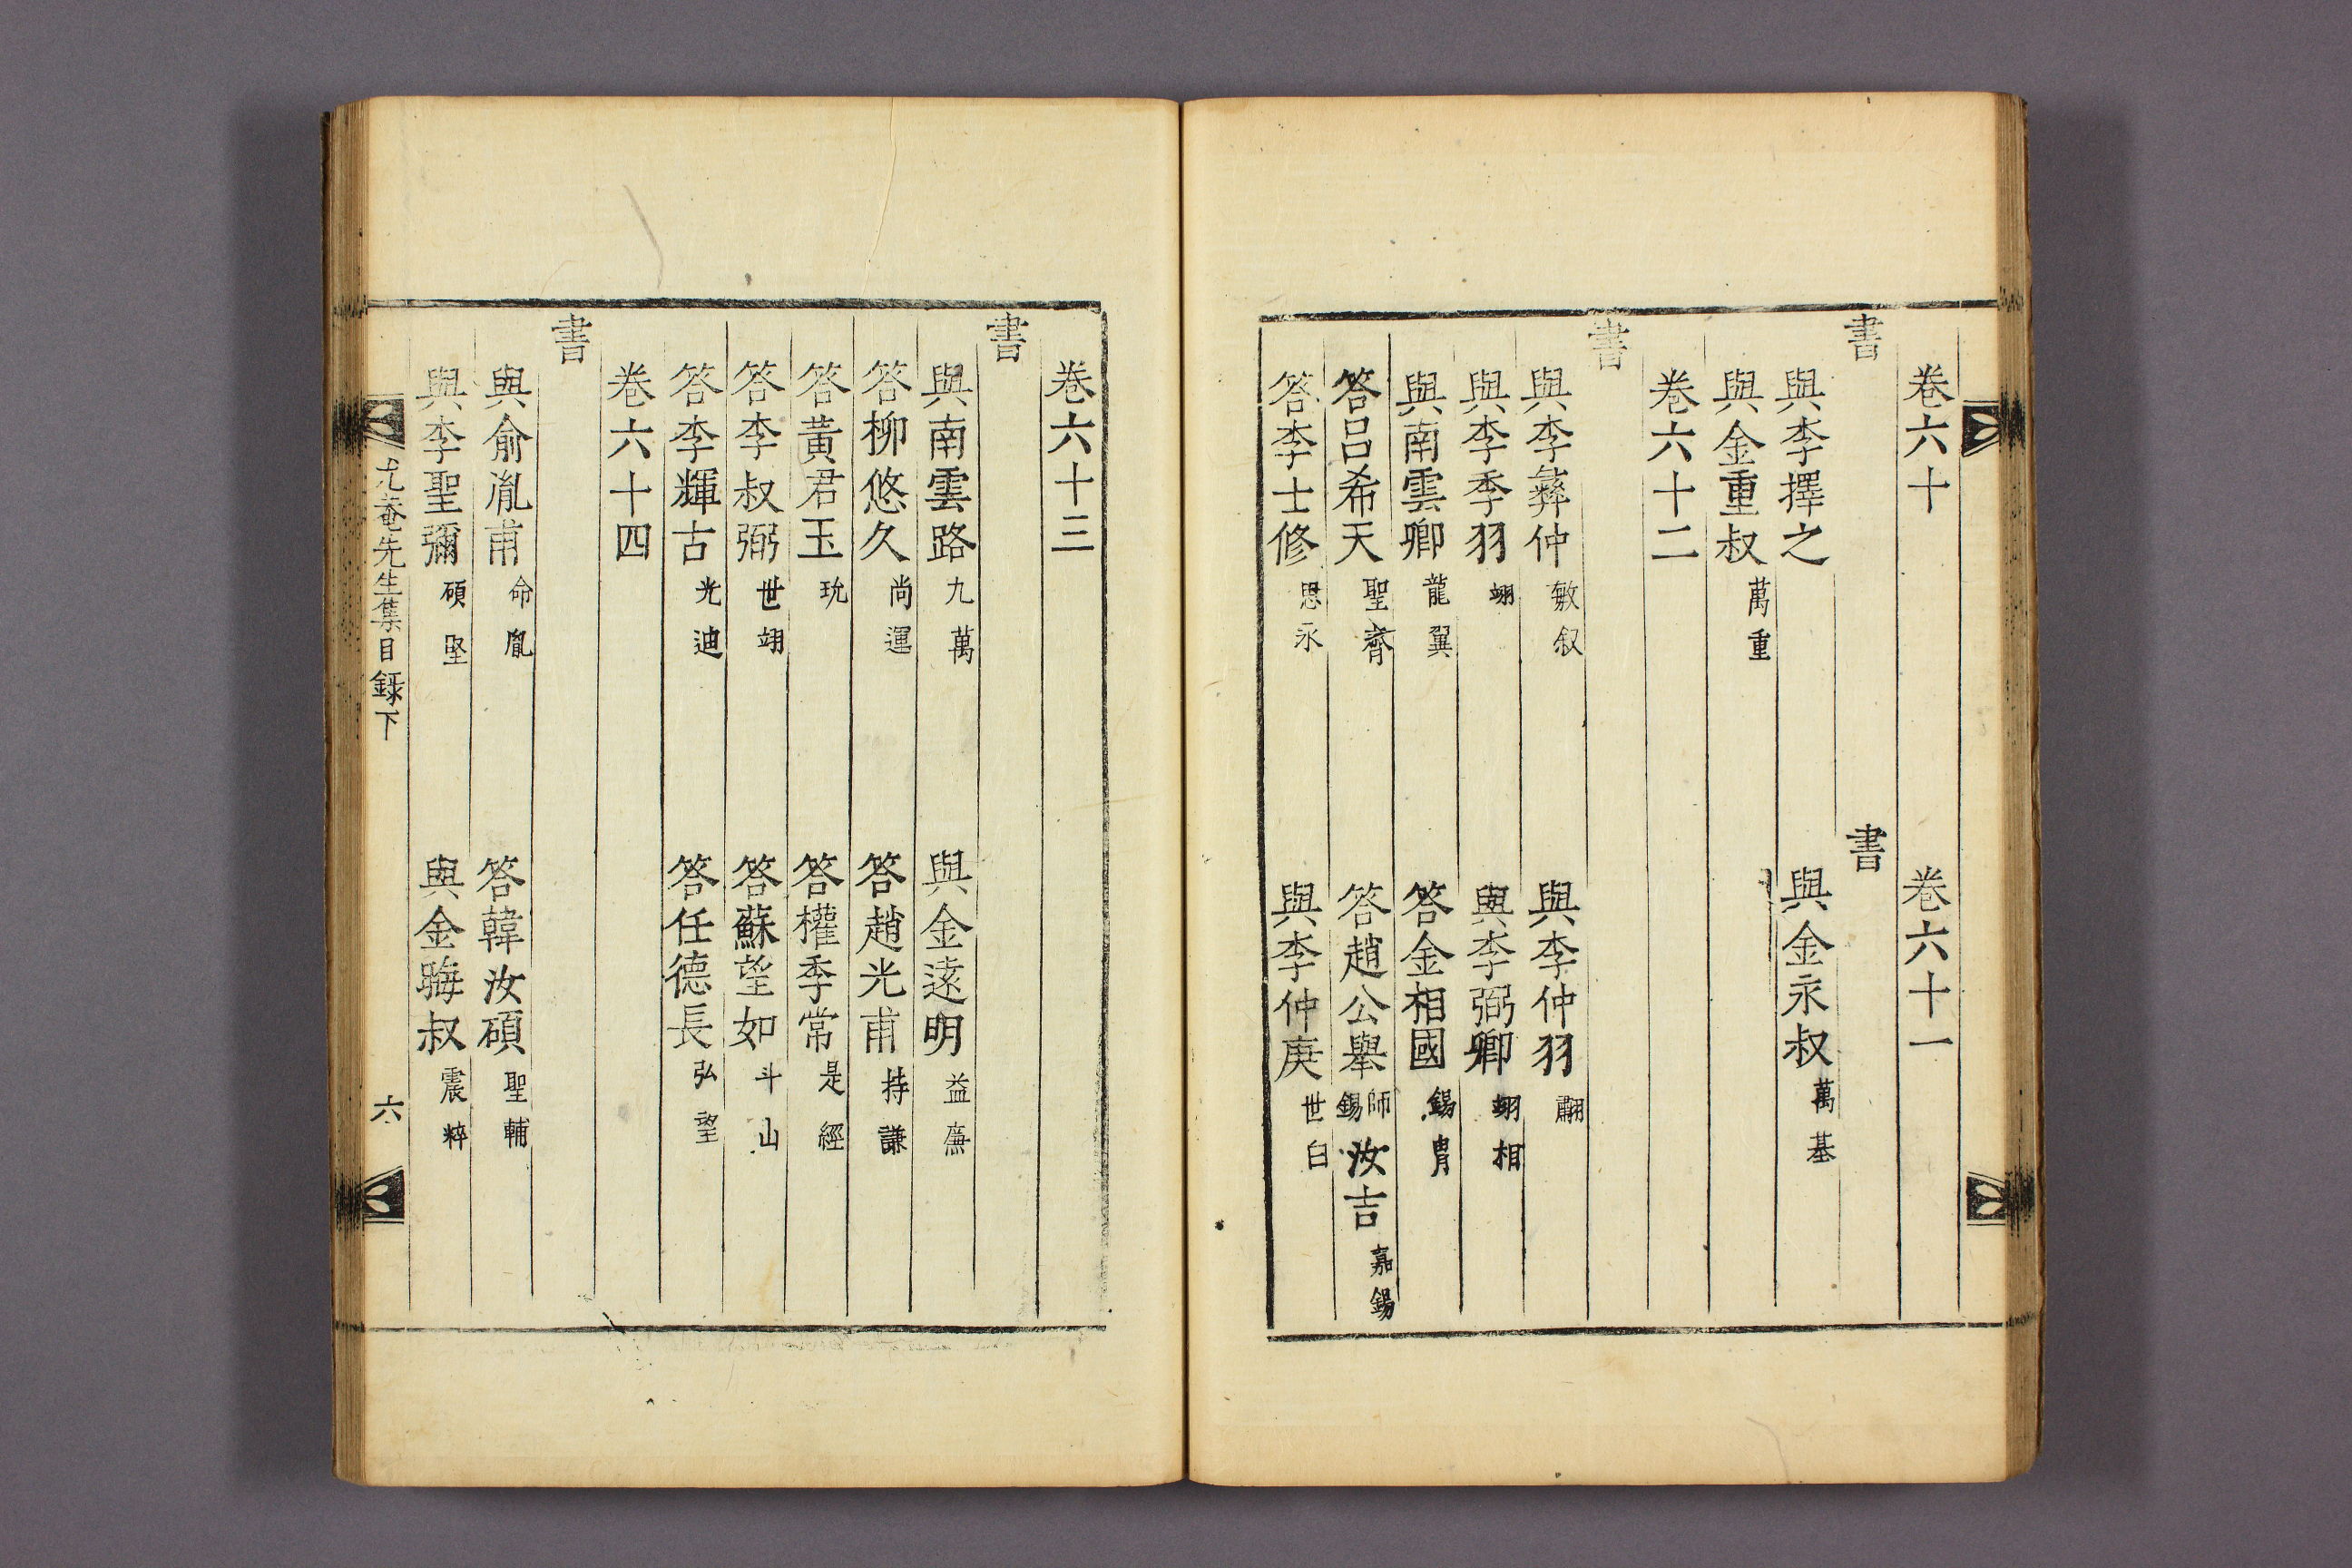 卷六十 卷六十一
書 書
與李擇之 與金永叔 萬基
與金重叔 萬重
卷六十二
書
與李彝仲 敏叙 與李仲羽 翽
與李季羽 翊 與李弼卿 翊相
與南雲卿 龍翼 答金相國 錫胄
答呂希天 聖齊 答趙公舉 師錫 汝吉 嘉錫
答李士修 思永 與李仲庚 世白
卷六十三
書
與南雲路 九萬 與金遠明 益廉
答柳悠久 尚運 答趙光甫 持謙
答黃君玉 玧 答權季常 是經
答李叔弼 世翊 答蘇望如 斗山
答李輝古 光迪 答任德長 弘望
卷六十四
書
與俞胤甫 命胤 答韓汝碩 聖輔
與李聖彌 碩堅 與金晦叔 震粹
尤菴先生集目錄下 六